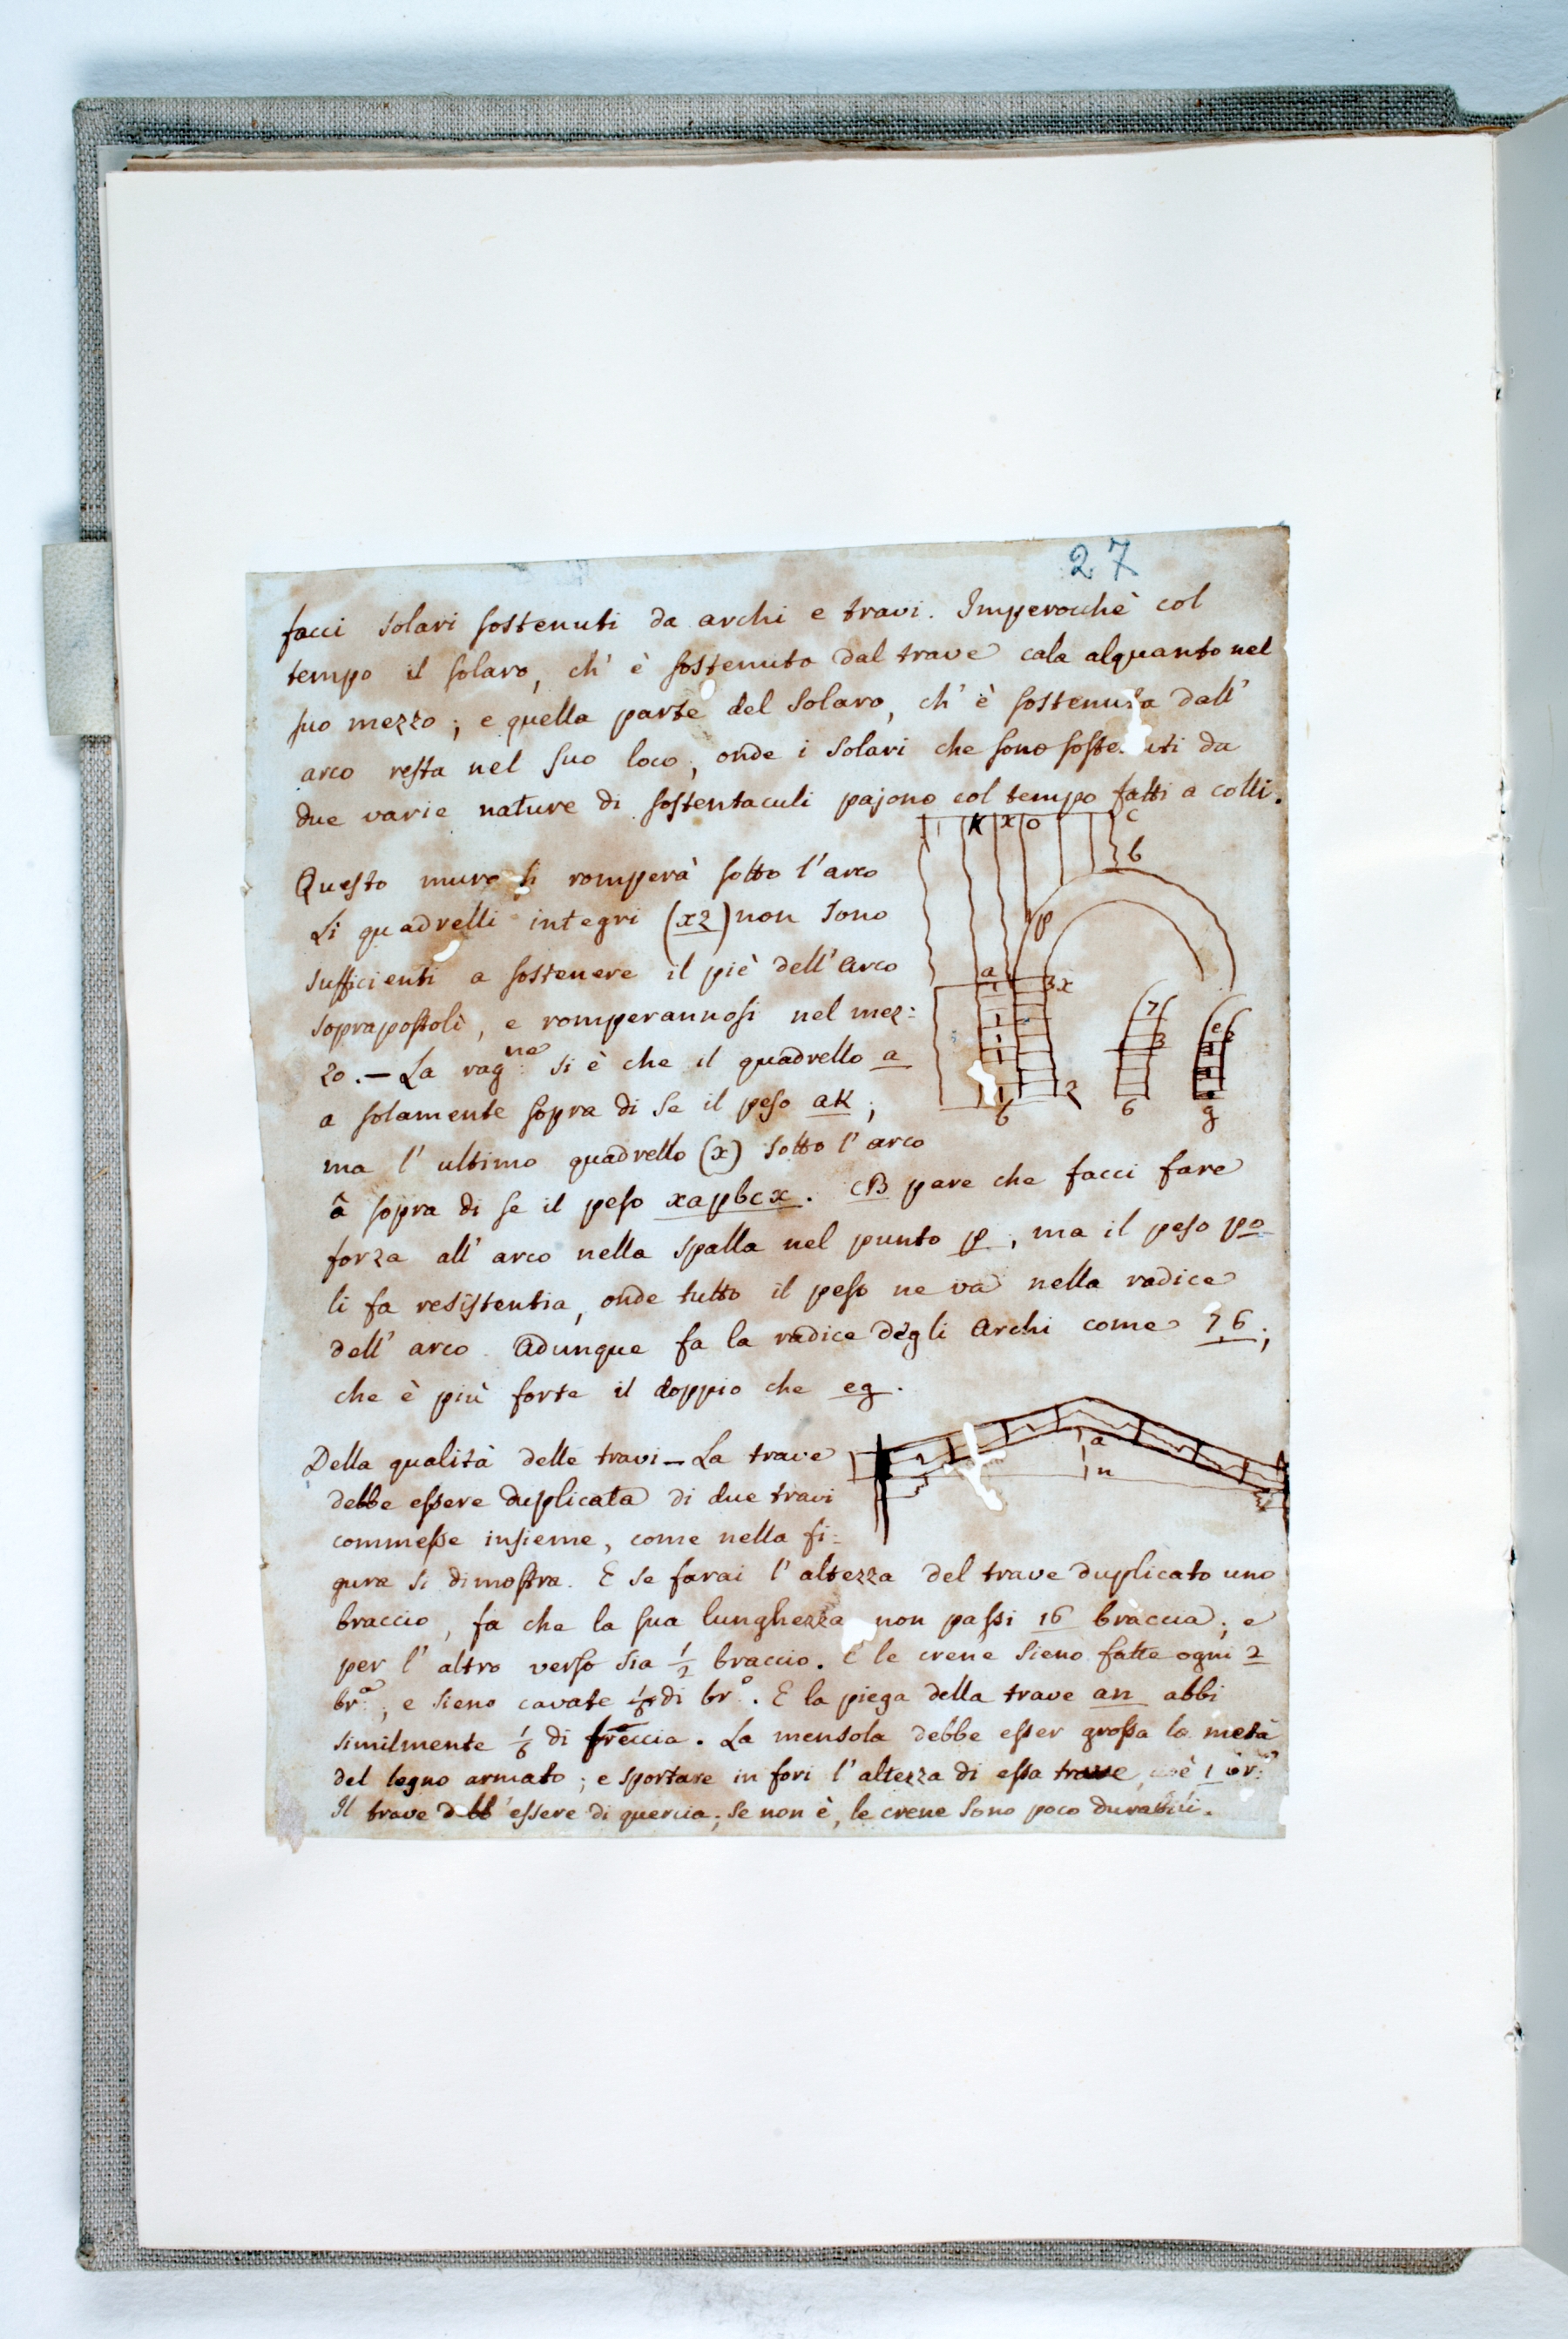 27
facci solari sostenuti da archi e travi. Imperocchè col
tempo il solaro, ch' è sostenuto dal trave cala alquanto nel
suo mezzo; e quella parte del solaro, ch' è sostenuta dall'
arco resta nel suo loco; onde i solari che sono sostenuti da
due varie nature di sostentaculi pajono col tempo fatti a colli.
K x o c
b
p
a 3x
1
1
1
1 2
6
7
3
6
e
g
Questo muro si romperà sotto l'arco
Li quadrelli integri (x2) non sono
sufficienti a sostenere il piè dell' arco
soprapostolì, e romperannosi nel mez:
zo. — La rag:ne si è che il quadrello a
a solamente sopra di se il peso aK;
ma l' ultimo quadrello (x) sotto l' arco
â sopra di se il peso xapbcx. cB pare che facci fare
forza all' arco nella spalla nel punto p, ma il peso po
li fa resistentia, onde tutto il peso ne va nella radice
dell' arco. Adunque fa la radice degli archi come 76;
che è più forte il doppio che eg.
a
n
Della qualità delle travi — La trave
debbe essere duplicata di due travi
commesse insieme, come nella fi:
gura si dimostra. E se farai l' altezza del trave duplicato uno
braccio, fa che la sua lunghezza non passi 16 braccia; e
per l' altro verso sia 1/2 braccio. E le crene sieno fatte ogni 2
br:a; e sieno cavate 1/6 di br:o. E la piega della trave an abbi
similmente 1/6 di freccia. La mensola debbe esser grossa la metà
del legno armato; e sportare in fori l' altezza di essa trave, cioè 1 br:o
Il trave debb' essere di quercia; se non è, le crene sono poco durabili.